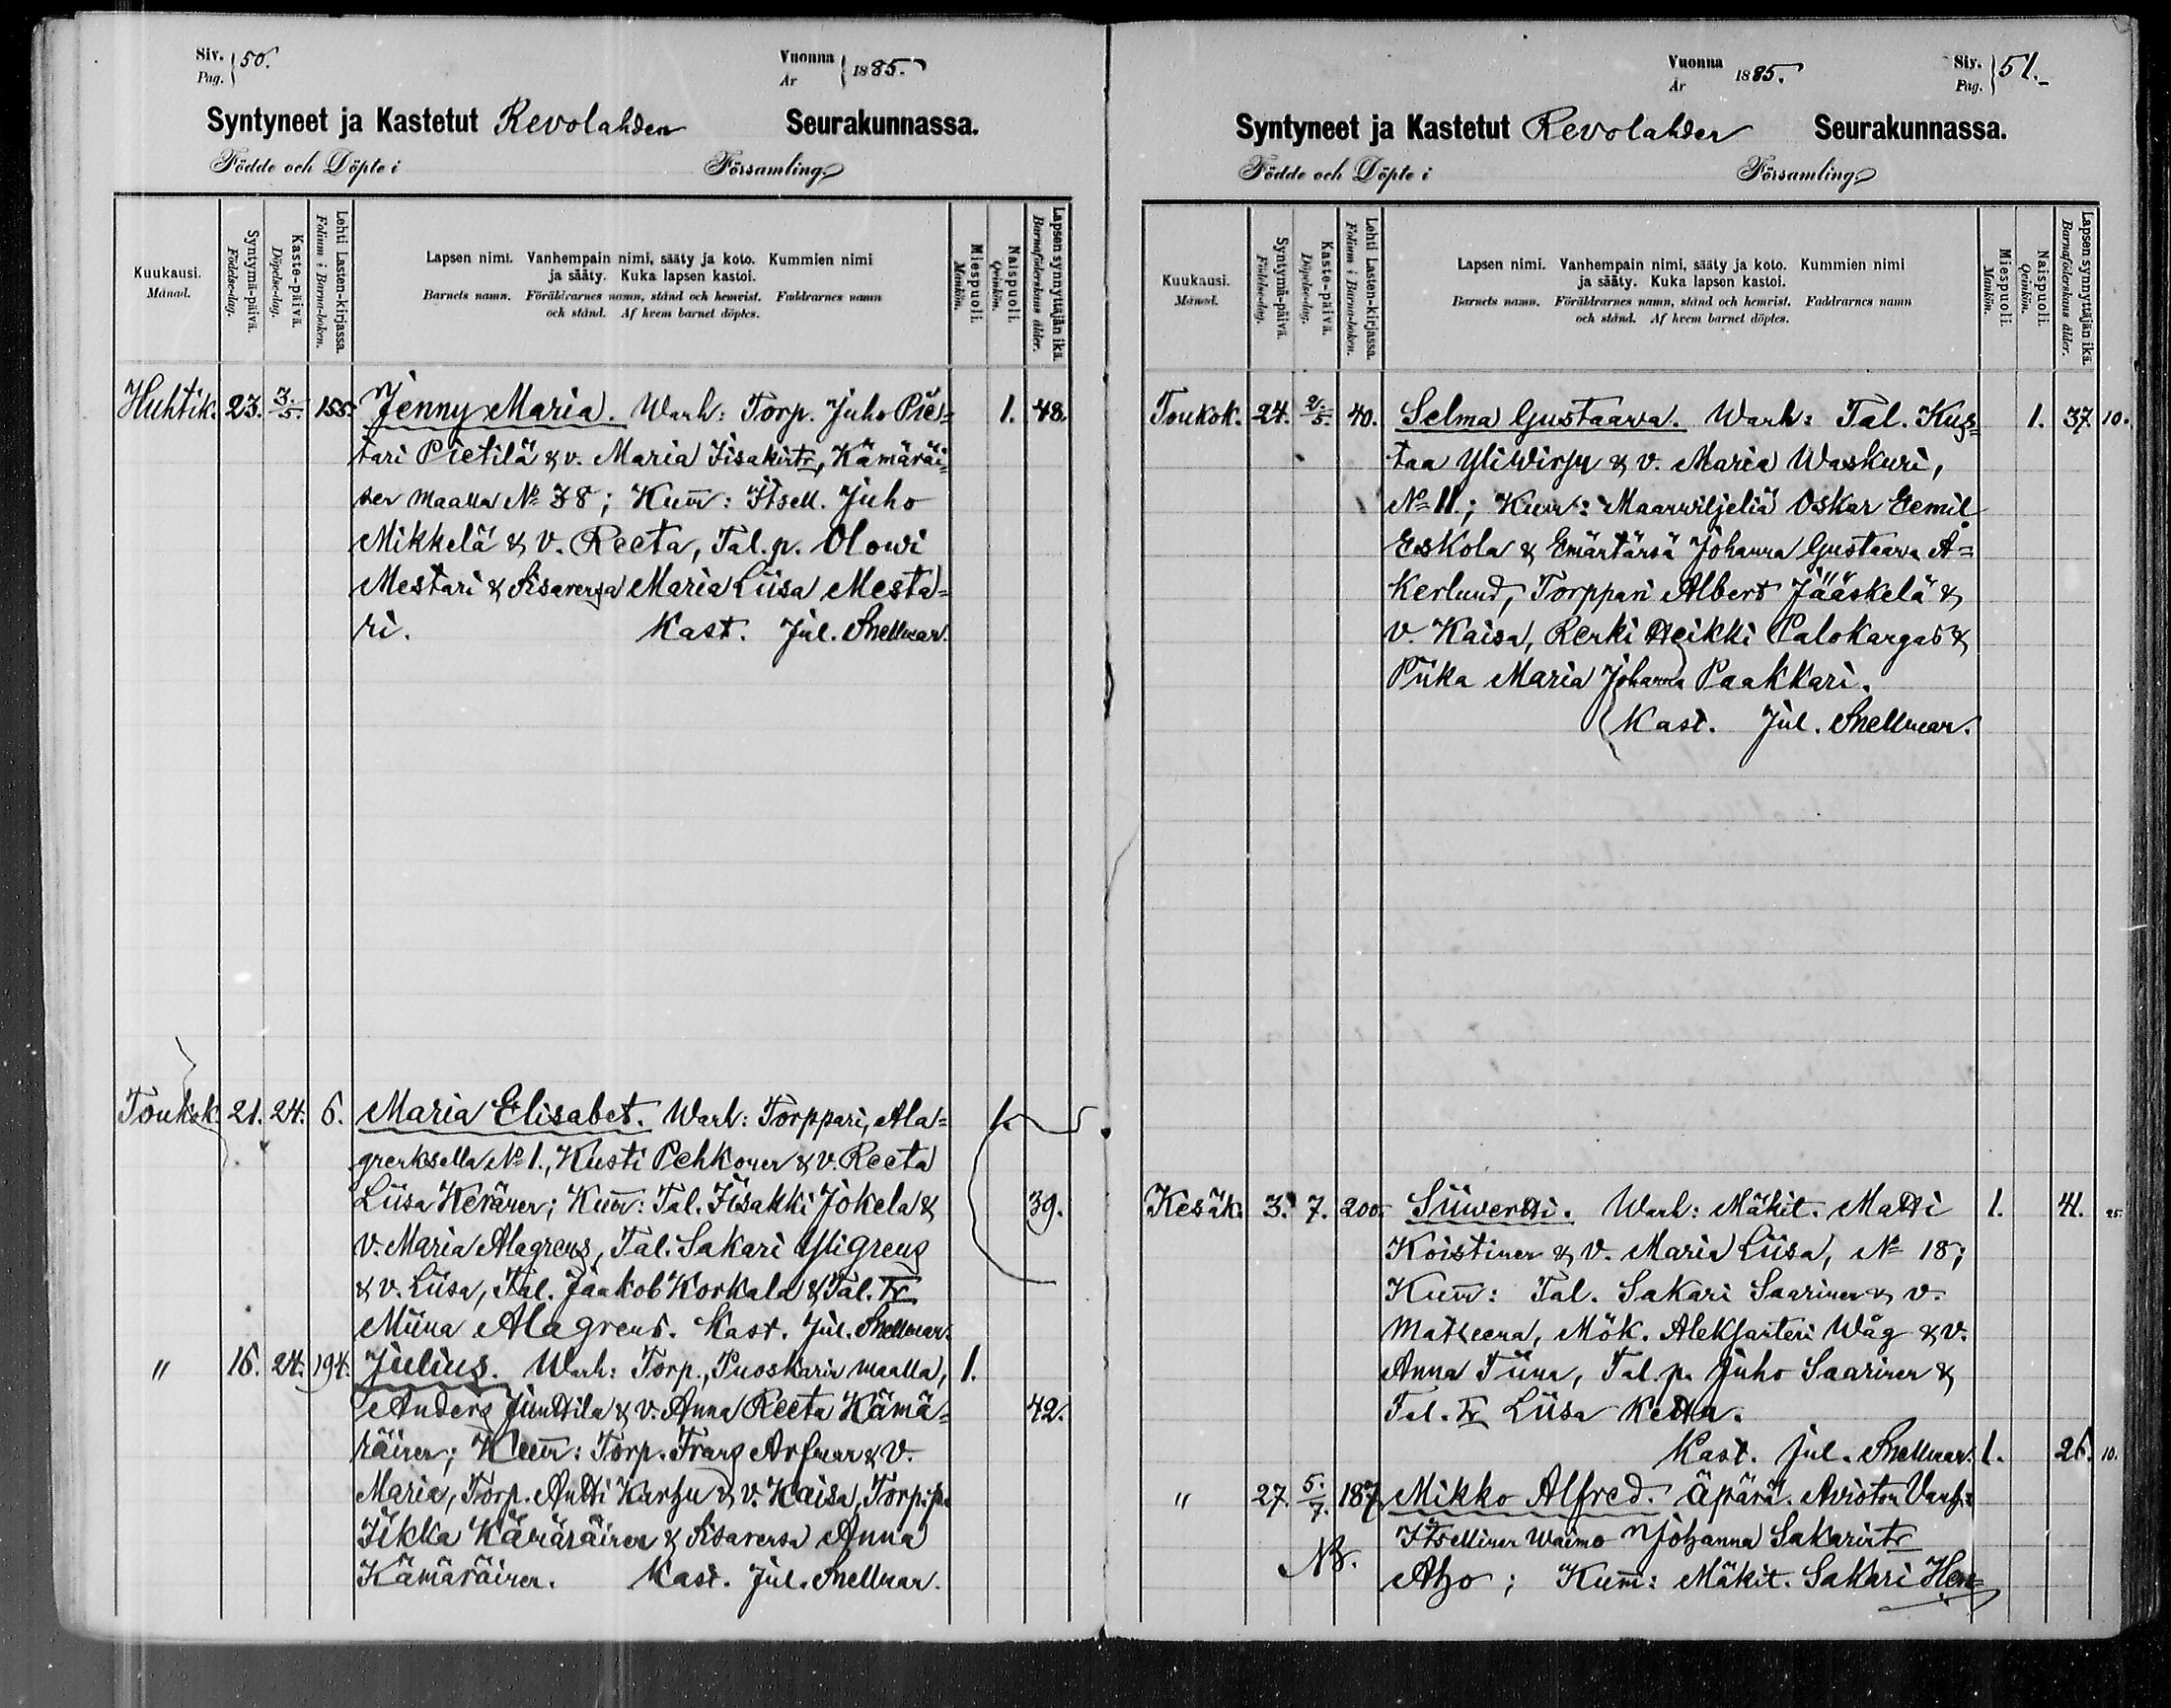 Siv. Pag. 50.
Vuonna År 1885.
Syntyneet ja Kastetut Revolahden Seurakunnassa.
Födde och Döpte i Församling.
Kuukausi. Månad.
Syntymä-päivä. Födelse-dag.
Kaste-päivä. Döpelse-dag.
Lehti Lasten-kirjassa. Folium i Barna-boken.
Lapsen nimi. Vanhempain nimi, sääty ja koto. Kummien nimi
ja sääty. Kuka lapsen kastoi.
Barnets namn. Föräldrarnes namn, stånd och hemvist. Faddrarnes namn
och stånd. Af hvem barnet döptes.
Miespuoli. Mankön.
Naispuoli. Qvinkön.
Lapsen synnyttäjän ikä. Barnaföderskans ålder.
Huhtik. 23. 3./5. 155. Jenny Maria. Wanh: Torp. Juho Pie= 1. 48.
tari Pietilä & v. Maria Iisakintr, Kämäräi=
sen maalla No 38; Kum: Itsell. Juho
Mikkelä & v. Reeta, Tal.p. Olowi
Mestari & Sisarensa Maria Liisa Mesta=
ri. Kast. Jul. Snellman.
Toukok. 21. 24. 6. Maria Elisabet. Wanh: Torppari, Ala= 1.
grenksella No 1., Kusti Pehkonen & v. Reeta
Liisa Keränen; Kum: Tal. Iisakki Jokela & 39.
v. Maria Alagreus, Tal. Sakari Yligreus
& v. Liisa, Tal. Jaakob Korkala & Tal. Tr
Miina Alagreus. Kast. Jul. Snellman.
" 16. 24. 194. Julius. Wanh: Torp., Puoskarin maalla, 1.
Anders Junttila & v. Anna Reeta Kämä= 42.
räinen; Kum: Torp. Frans Arfman & v.
Maria, Torp. Antti Karhu & v. Kaisa, Torp.p.
Iikka Kämäräinen & Sisarensa Anna
Kämäräinen. Kast. Jul. Snellman.
Vuonna År 1885.
Siv. Pag. 51.
Syntyneet ja Kastetut Revolahden Seurakunnassa.
Födde och Döpte i Församling.
Kuukausi. Månad.
Syntymä-päivä. Födelse-dag.
Kaste-päivä. Döpelse-dag.
Lehti Lasten-kirjassa. Folium i Barna-boken.
Lapsen nimi. Vanhempain nimi, sääty ja koto. Kummien nimi
ja sääty. Kuka lapsen kastoi.
Barnets namn. Föräldrarnes namn, stånd och hemvist. Faddrarnes namn
och stånd. Af hvem barnet döptes.
Miespuoli. Mankön.
Naispuoli. Qvinkön.
Lapsen synnyttäjän ikä. Barnaföderskans ålder.
Toukok. 24. 40. Selma Gustaava. Wanh: Tal. Kus= 1. 37. 10.
taa Yliwirsu & v. Maria Waskuri,
No 11.; Kum: Maanviljeliä Oskar Eemil
Eskola & Emäntänsä Johanna Gustaava Å=
kerlund, Torppari Albert Jääskelä &
v. Kaisa, Renki Heikki Palokangas &
Piika Maria Johanna Paakkari.
Kast. Jul. Snellman.
Kesäk. 3. 7. 200. Siiwertti. Wanh: Mäkit. Matti 1. 41. 25.
Koistinen & v. Maria Liisa, No 18;
Kum: Tal. Sakari Saarinen & v.
Matleena, Mök. Aleksanteri Wåg & v.
Anna Tiina, Tal.p. Juho Saarinen &
Tal. Tr Liisa Ketta.
Kast. Jul. Snellman. 1. 26. 10.
" 27. 5./7. 187. Mikko Alfred. Äpärä. Avioton Vanh:
Itsellinen Waimo Johanna Sakarintr
NB. Aho; Kum: Mäkit. Sakari Hen=